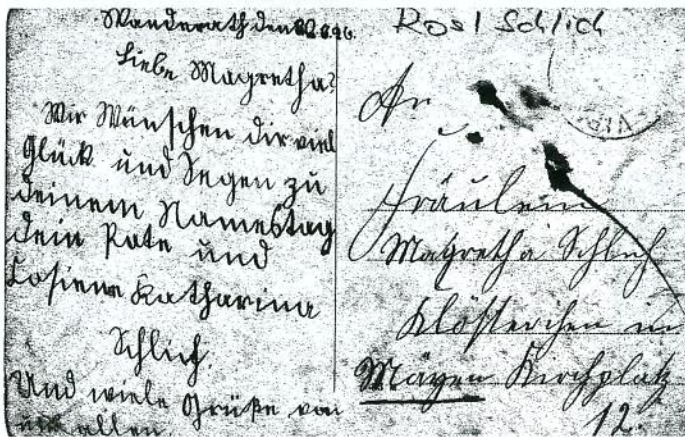 Wanderath den
Liebe Magretha!
Wir Wünschen dir viel
Glück und Segen zu
deinem Namestag
dein Pate und
Katharina
Schlich.
Und wiele Grüße von
allen.
Rosl Schlich
An
Fräulein
Magretha Schlich
Klösterchen in
Mayen Kirchplatz
12.